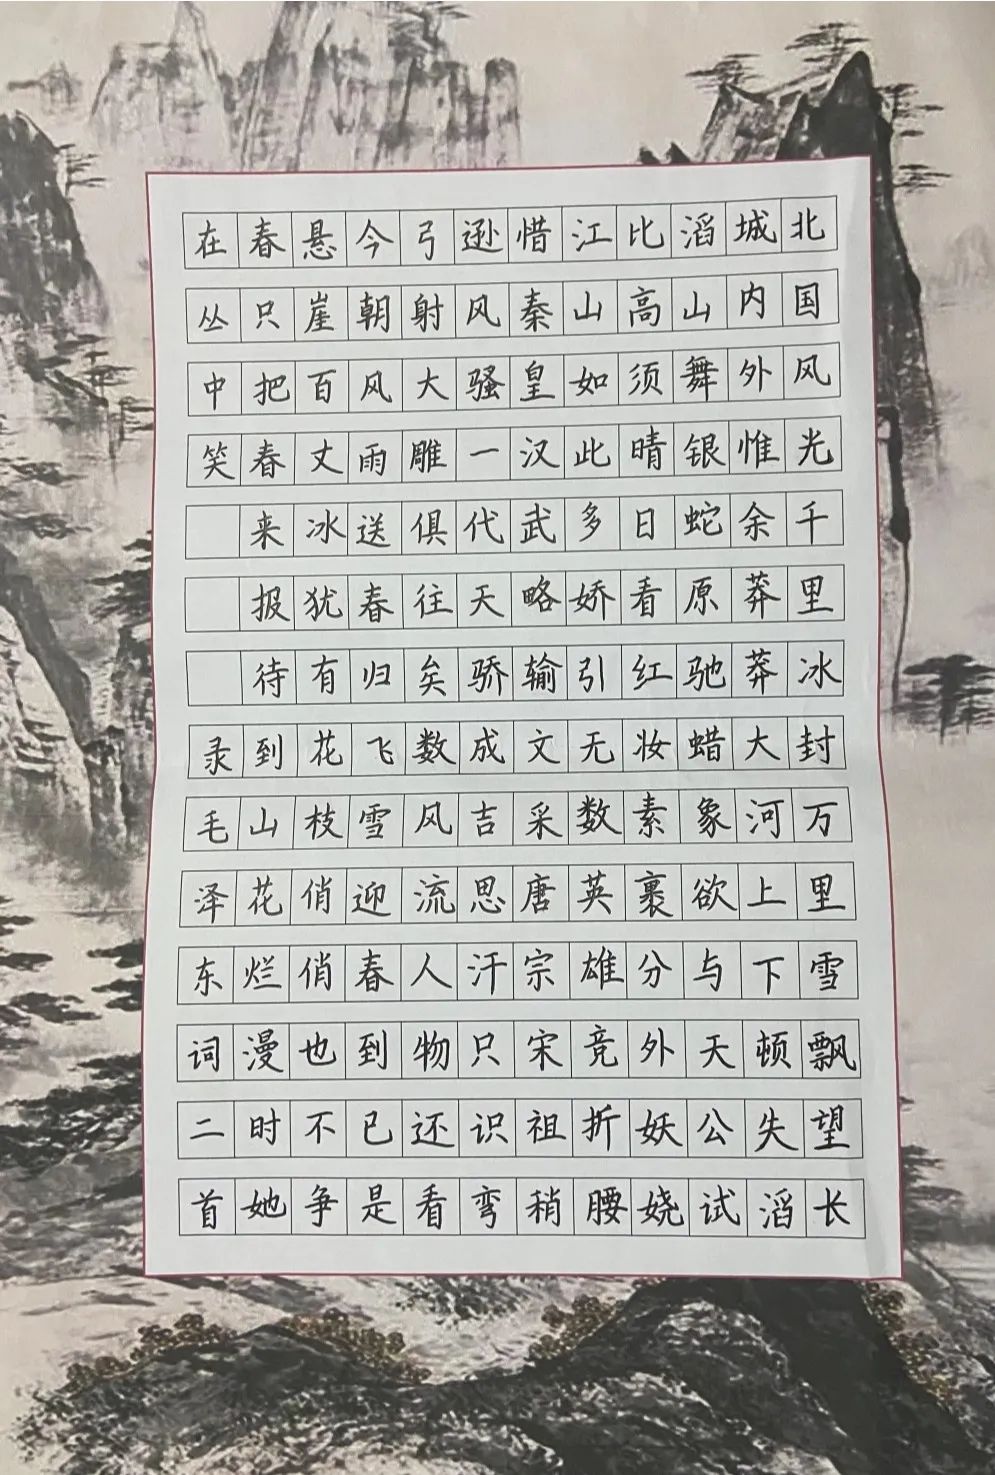 北国风光千里冰封万里雪飘望长
城内外惟余莽莽大河上下顿失滔
滔山舞银蛇原驰蜡象欲与天公试
比高须晴日看红妆素裹分外妖娆
江山如此多娇引无数英雄竞折腰
惜秦皇汉武略输文采唐宗宋祖稍
逊风骚一代天骄成吉思汗只识弯
弓射大雕俱往矣数风流人物还看
今朝风雨送春归飞雪迎春到已是
悬崖百丈冰犹有花枝俏俏也不争
春只把春来报待到山花烂漫时她
在丛中笑录毛泽东词二首